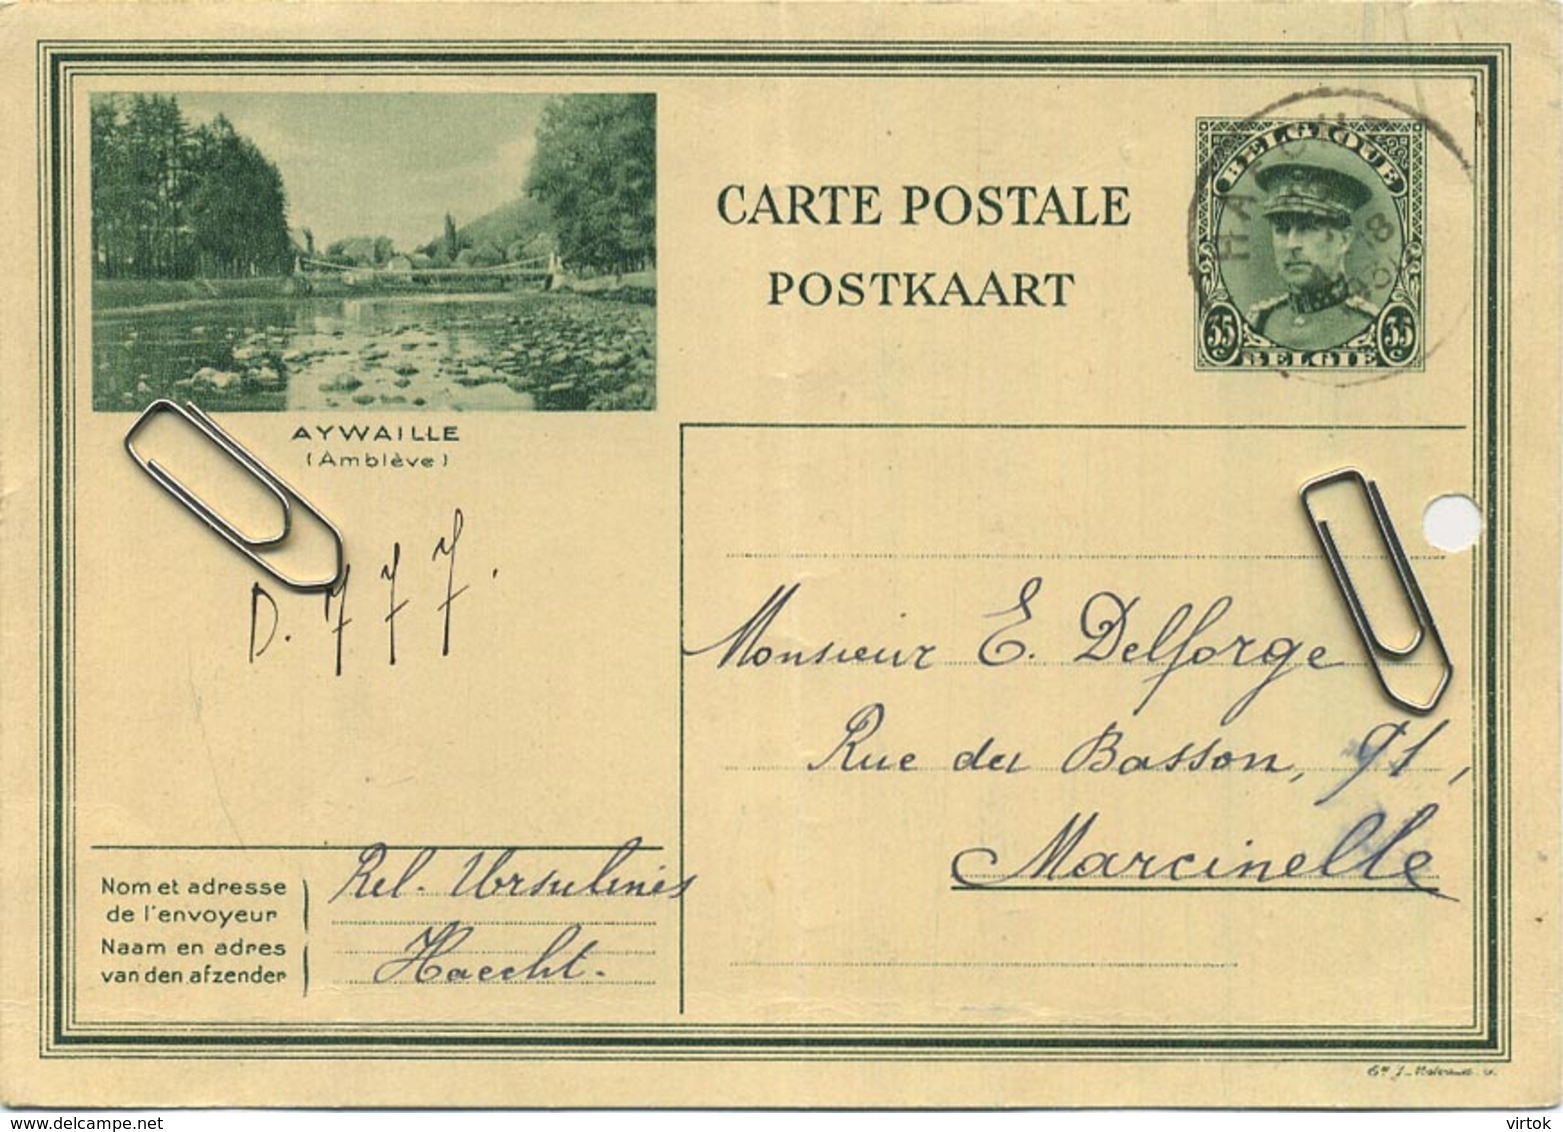 CARTE POSTALE
POSTKAART
BELGIQUE
35 c 35 c
BELGIË
AYWAILLE
(Amblève)
D. 777.
Monsieur E. Delforge
Rue du Basson, 91,
Marcinelle
Nom et adresse
de l'envoyeur
Naam en adres
van den afzender
Rel. Ursulines
Haecht.
delcampe.net
virtok